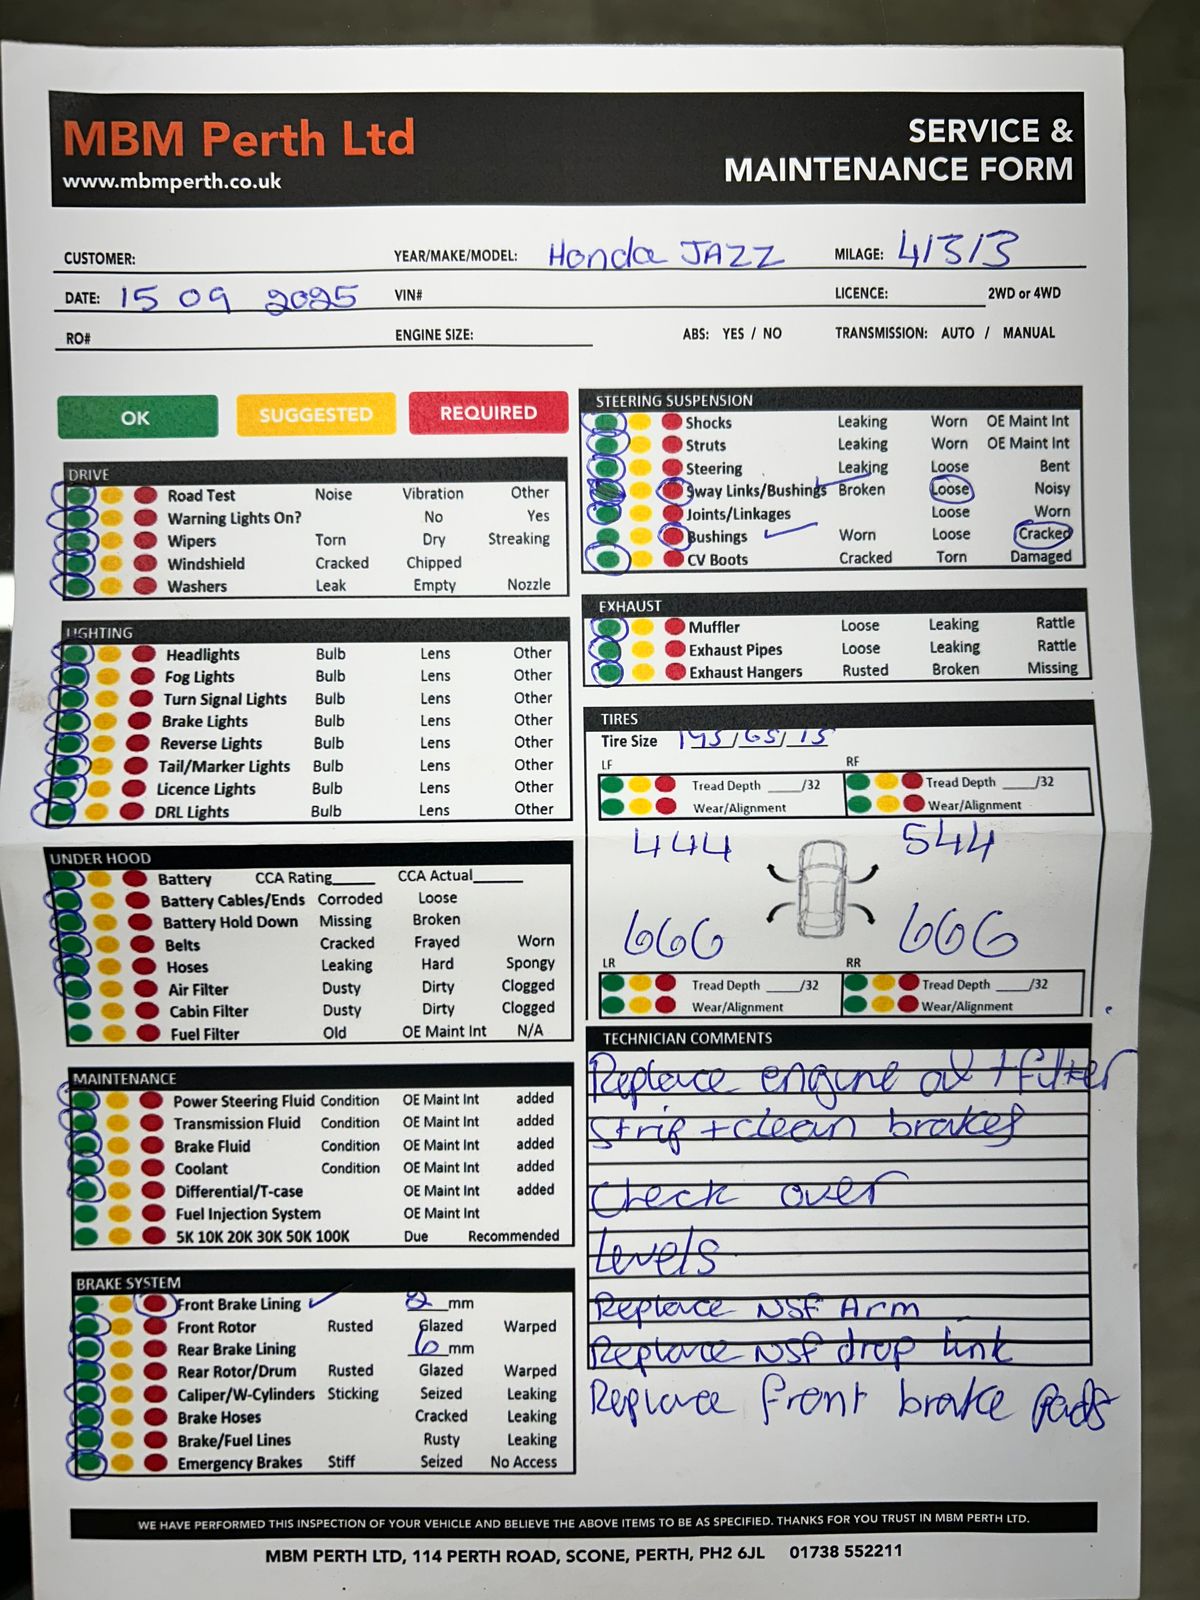 MBM Perth Ltd
www.mbmperth.co.uk
SERVICE &
MAINTENANCE FORM
CUSTOMER: YEAR/MAKE/MODEL: Honda JAZZ MILAGE: 41313
DATE: 15 09 2025 VIN# LICENCE: 2WD or 4WD
RO# ENGINE SIZE: ABS: YES / NO TRANSMISSION: AUTO / MANUAL
OK SUGGESTED REQUIRED
DRIVE
Road Test Noise Vibration Other
Warning Lights On? No Yes
Wipers Torn Dry Streaking
Windshield Cracked Chipped
Washers Leak Empty Nozzle
LIGHTING
Headlights Bulb Lens Other
Fog Lights Bulb Lens Other
Turn Signal Lights Bulb Lens Other
Brake Lights Bulb Lens Other
Reverse Lights Bulb Lens Other
Tail/Marker Lights Bulb Lens Other
Licence Lights Bulb Lens Other
DRL Lights Bulb Lens Other
UNDER HOOD
Battery CCA Rating_____ CCA Actual______
Battery Cables/Ends Corroded Loose
Battery Hold Down Missing Broken
Belts Cracked Frayed Worn
Hoses Leaking Hard Spongy
Air Filter Dusty Dirty Clogged
Cabin Filter Dusty Dirty Clogged
Fuel Filter Old OE Maint Int N/A
MAINTENANCE
Power Steering Fluid Condition OE Maint Int added
Transmission Fluid Condition OE Maint Int added
Brake Fluid Condition OE Maint Int added
Coolant Condition OE Maint Int added
Differential/T-case OE Maint Int added
Fuel Injection System OE Maint Int
5K 10K 20K 30K 50K 100K Due Recommended
BRAKE SYSTEM
Front Brake Lining ✓ 2 mm
Front Rotor Rusted Glazed Warped
Rear Brake Lining 6 mm
Rear Rotor/Drum Rusted Glazed Warped
Caliper/W-Cylinders Sticking Seized Leaking
Brake Hoses Cracked Leaking
Brake/Fuel Lines Rusty Leaking
Emergency Brakes Stiff Seized No Access
STEERING SUSPENSION
Shocks Leaking Worn OE Maint Int
Struts Leaking Worn OE Maint Int
Steering Leaking Loose Bent
Sway Links/Bushings ✓ Broken Loose Noisy
Joints/Linkages Loose Worn
Bushings ✓ Worn Loose Cracked
CV Boots Cracked Torn Damaged
EXHAUST
Muffler Loose Leaking Rattle
Exhaust Pipes Loose Leaking Rattle
Exhaust Hangers Rusted Broken Missing
TIRES
Tire Size /65/15
LF RF
Tread Depth _____/32 Tread Depth _____/32
Wear/Alignment Wear/Alignment
444 544
666 666
LR RR
Tread Depth _____/32 Tread Depth _____/32
Wear/Alignment Wear/Alignment
TECHNICIAN COMMENTS
Replace engine oil + filter
Strip + clean brakes
Check over
levels
Replace NSF Arm
Replace NSF drop link
Replace front brake pads
WE HAVE PERFORMED THIS INSPECTION OF YOUR VEHICLE AND BELIEVE THE ABOVE ITEMS TO BE AS SPECIFIED. THANKS FOR YOU TRUST IN MBM PERTH LTD.
MBM PERTH LTD, 114 PERTH ROAD, SCONE, PERTH, PH2 6JL 01738 552211